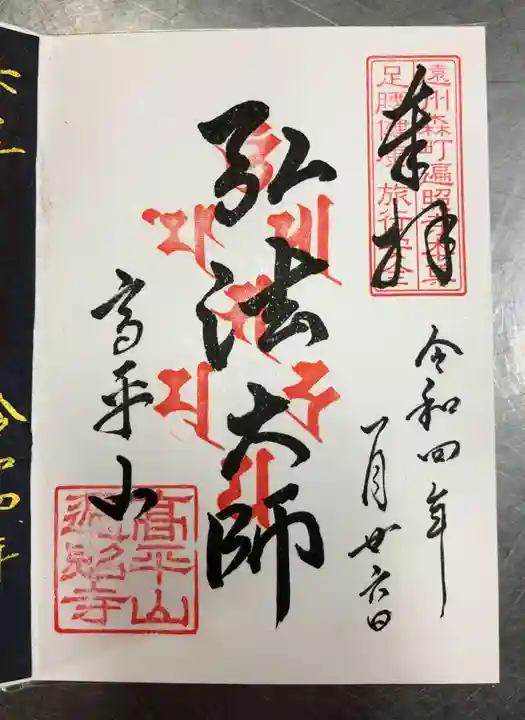 奉拝
遠州森町遍照寺
足腰健康 旅行安全
令和四年
一月廿六日
弘法大師
高平山
高平山
遍照寺
令和四年